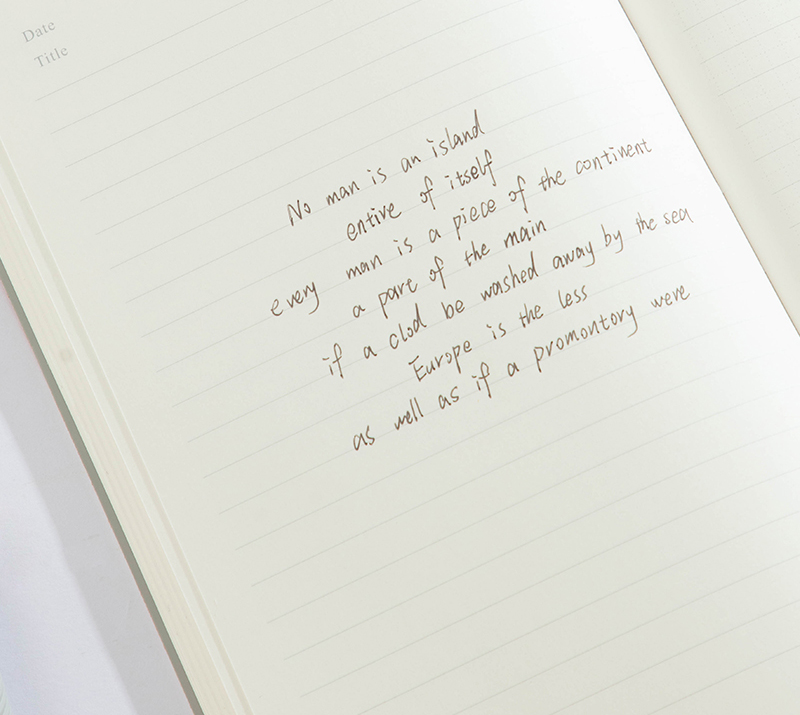 Date
Title
No man is an island
entive of itself
every man is a piece of the continent
a part of the main
if a clod be washed away by the sea
Europe is the less
as well as if a promontory were